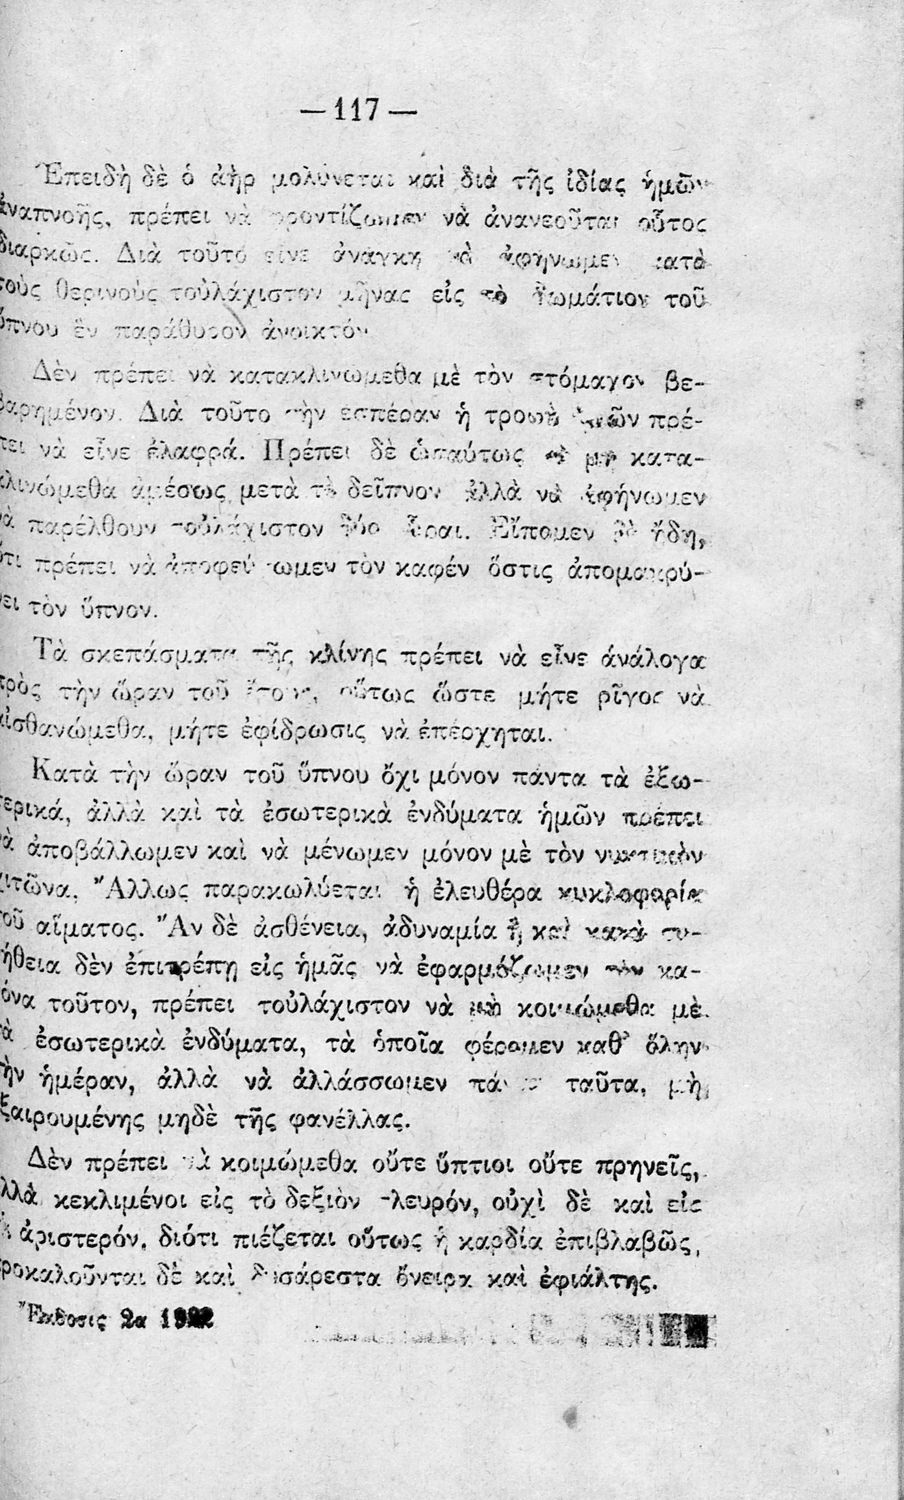 — 117 —
Ἐπειδὴ δὲ ὁ ἀὴρ μολύνεται καὶ διὰ τῆς ἰδίας ἡμῶν
ἀναπνοῆς, πρέπει νὰ φροντίζωμεν νὰ ἀνανεοῦται οὗτος
διαρκῶς. Διὰ τοῦτο εἶνε ἀνάγκη νὰ ἀφήνωμεν κατὰ
τοὺς θερινοὺς τοὐλάχιστον μῆνας εἰς τὸ δωμάτιον τοῦ
ὕπνου ἓν παράθυρον ἀνοικτόν
Δὲν πρέπει νὰ κατακλινώμεθα μὲ τὸν στόμαχον βε-
βαρημένον. Διὰ τοῦτο τὴν ἑσπέραν ἡ τροφὴ ἡμῶν πρέ-
πει νὰ εἶνε ἐλαφρά. Πρέπει δὲ ὡσαύτως νὰ μὴ κατα-
κλινώμεθα ἀμέσως μετὰ τὸ δεῖπνον ἀλλὰ νὰ ἀφήνωμεν
νὰ παρέλθουν τοὐλάχιστον δύο ὧραι. Εἴπομεν δὲ ἤδη,
ὅτι πρέπει νὰ ἀποφεύγωμεν τὸν καφέν ὅστις ἀπομακρύ-
νει τὸν ὕπνον.
Τὰ σκεπάσματα τῆς κλίνης πρέπει νὰ εἶνε ἀνάλογα
πρὸς τὴν ὥραν τοῦ ἔτους, οὕτως ὥστε μήτε ρῖγος νὰ
αἰσθανώμεθα, μήτε ἐφίδρωσις νὰ ἐπέρχηται.
Κατὰ τὴν ὥραν τοῦ ὕπνου ὄχι μόνον πάντα τὰ ἐξω-
τερικά, ἀλλὰ καὶ τὰ ἐσωτερικὰ ἐνδύματα ἡμῶν πρέπει
νὰ ἀποβάλλωμεν καὶ νὰ μένωμεν μόνον μὲ τὸν νυκτικὸν
χιτῶνα. Ἄλλως παρακωλύεται ἡ ἐλευθέρα κυκλοφορία
τοῦ αἵματος. Ἂν δὲ ἀσθένεια, ἀδυναμία ἢ καὶ κακὰ συ-
νήθεια δὲν ἐπιτρέπῃ εἰς ἡμᾶς νὰ ἐφαρμόζωμεν τὸν κα-
νόνα τοῦτον, πρέπει τοὐλάχιστον νὰ μὴ κοιμώμεθα μὲ
τὰ ἐσωτερικὰ ἐνδύματα, τὰ ὁποῖα φέρομεν καθ' ὅλην
τὴν ἡμέραν, ἀλλὰ νὰ ἀλλάσσωμεν πάντα ταῦτα, μὴ
ἐξαιρουμένης μηδὲ τῆς φανέλλας.
Δὲν πρέπει νὰ κοιμώμεθα οὔτε ὕπτιοι οὔτε πρηνεῖς,
ἀλλὰ κεκλιμένοι εἰς τὸ δεξιὸν πλευρόν, οὐχὶ δὲ καὶ εἰς
τὸ ἀριστερόν, διότι πιέζεται οὕτως ἡ καρδία ἐπιβλαβῶς,
προκαλοῦνται δὲ καὶ δυσάρεστα ὄνειρα καὶ ἐφιάλτης.
Ἔκδοσις 2α 1922